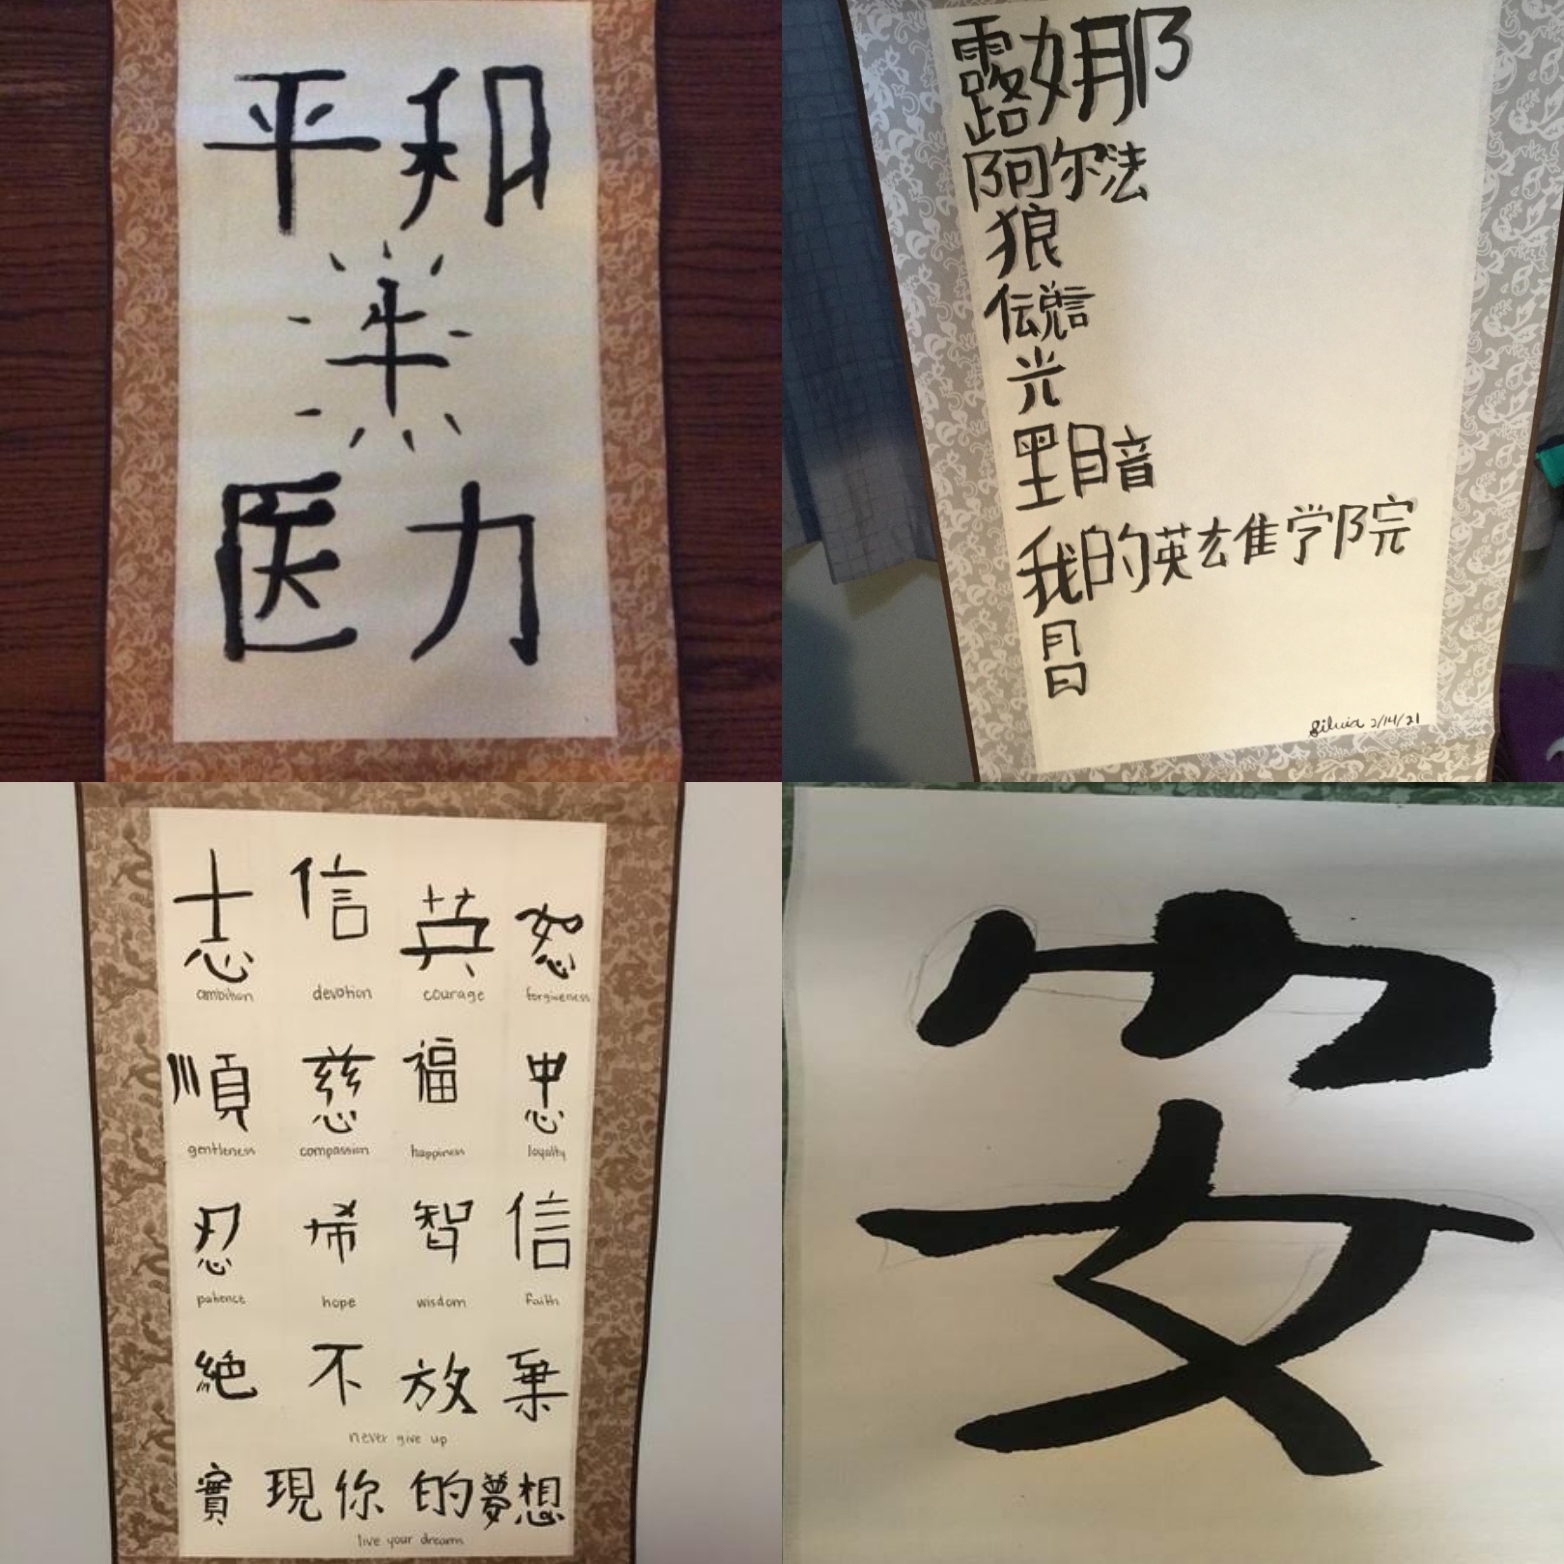 平和
半
医力
露娜那
阿尔法
狼
伝説信
光
黑暗
我的英雄学院
明
Silvia 2/14/21
志 信 英 恕
ambition devotion courage forgiveness
順 慈 福 忠
gentleness compassion happiness loyalty
忍 希 智 信
patience hope wisdom faith
絶 不 放 棄
never give up
實 現 你 的 夢 想
live your dreams
安